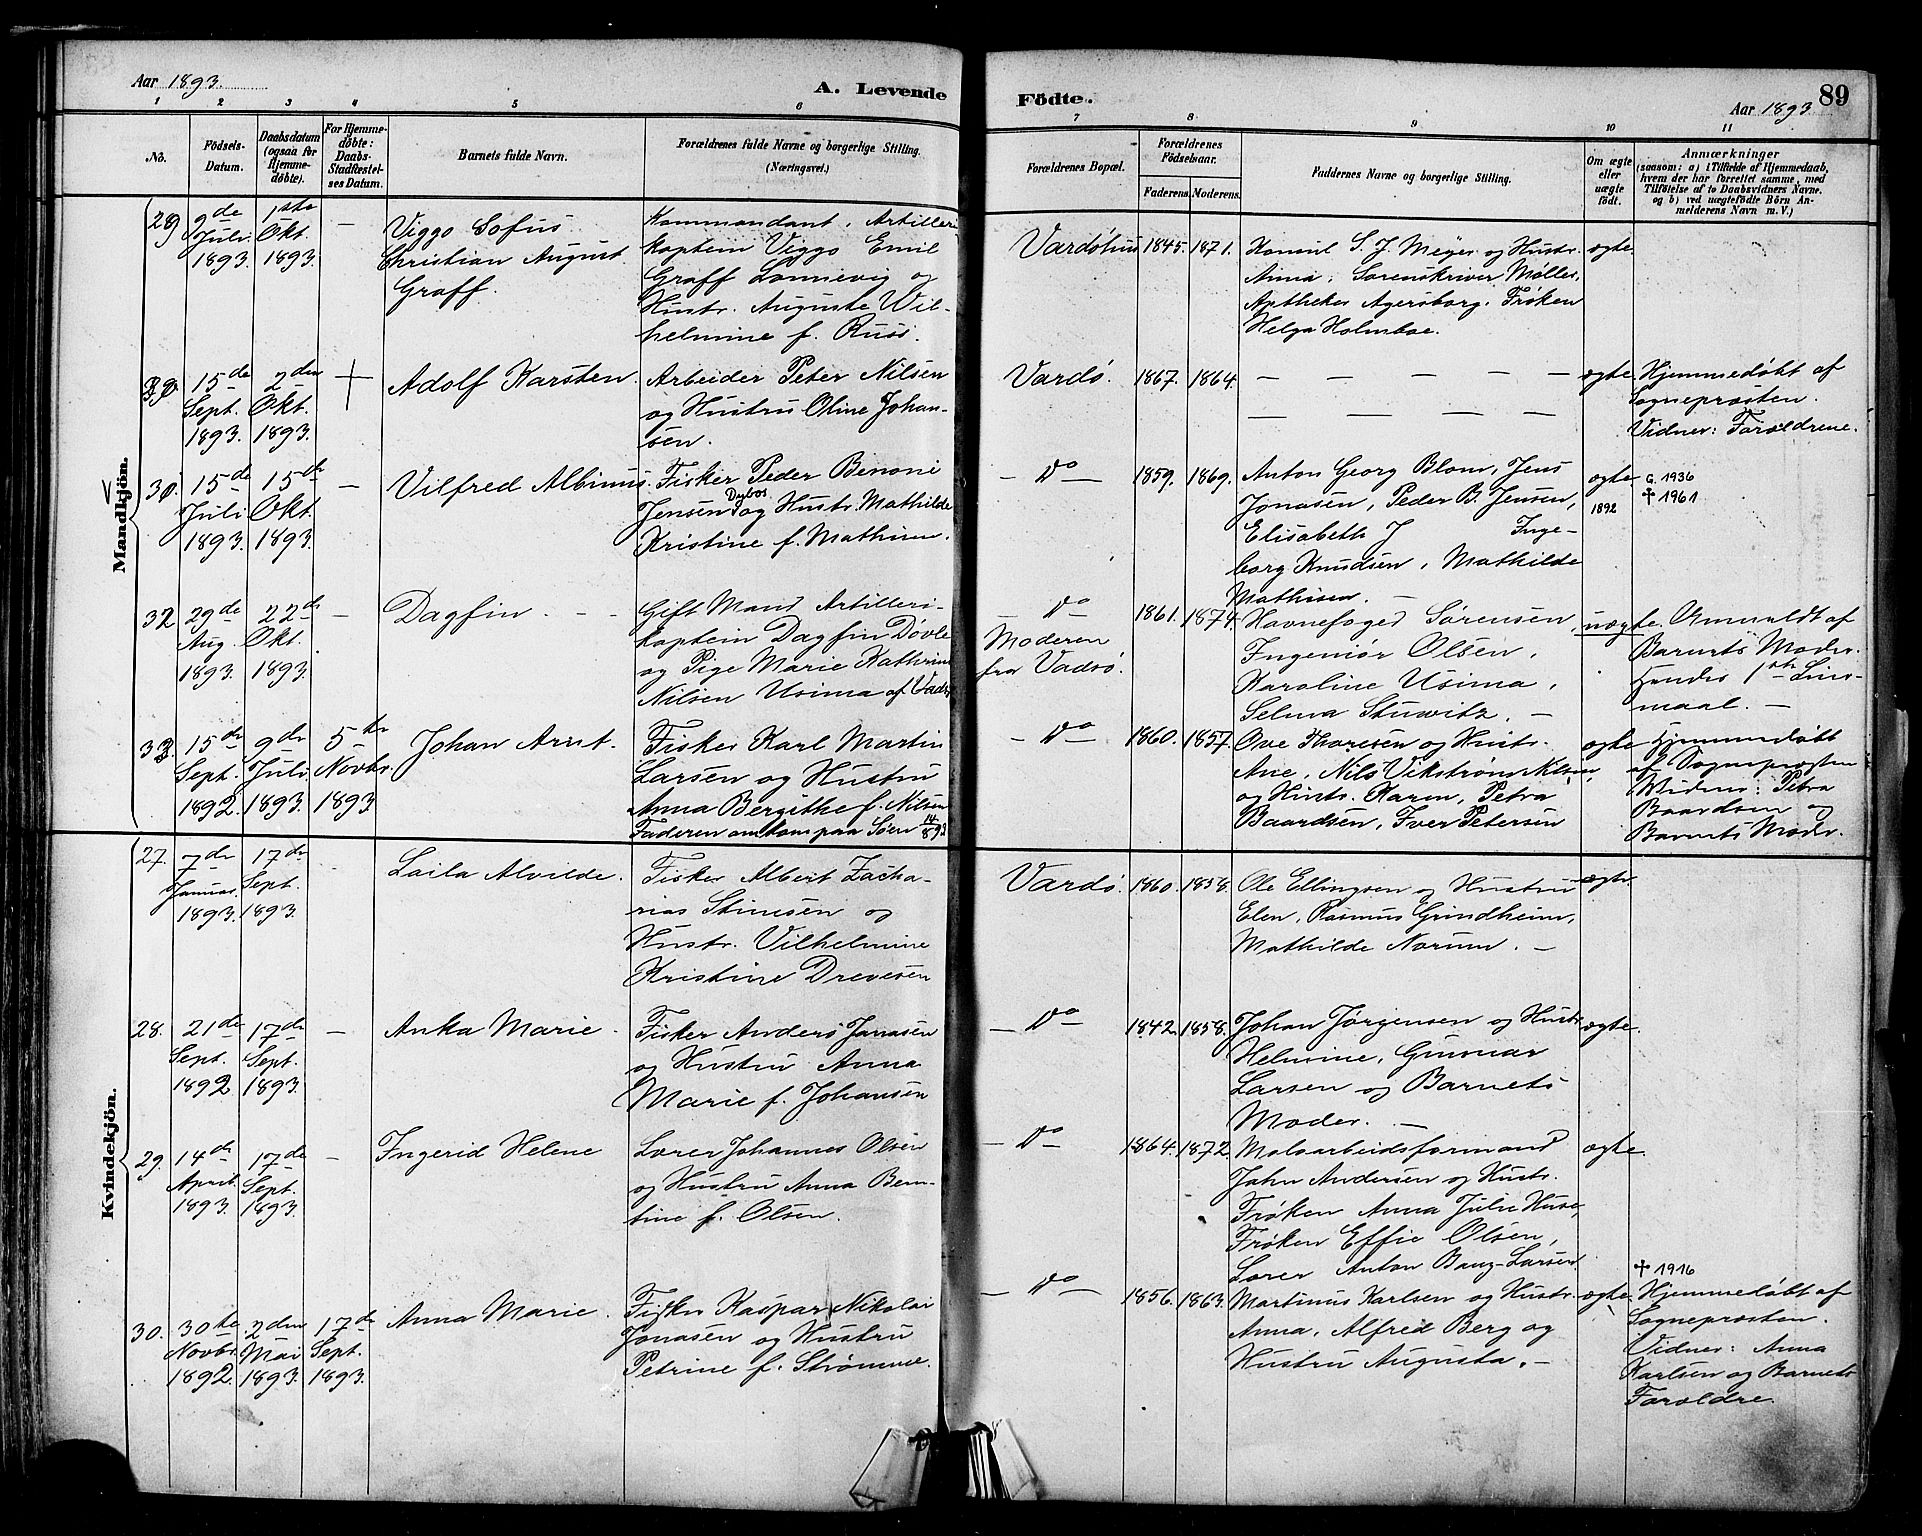 Aar 1893.
A. Levende
1 2 3 4 5 6
No.
Födsels-
Datum.
Daabsdatum
(ogsaa for
Hjemme-
døbte).
For Hjemme-
døbte:
Daabs-
Stadfæstel-
ses Datum.
Barnets fulde Navn.
Forældrenes fulde Navne og borgerlige Stilling.
(Næringsvei.)
Födte.
Aar 1893.
89
7 8 9 10 11
Forældrenes Bopæl.
Forældrenes
Födselsaar.
Faderens. Moderens.
Faddernes Navne og borgerlige Stilling.
Om ægte
eller
uægte
født.
Anmærkninger
(saasom: a) i Tilfælde af Hjemmedaab,
hvem der har forrettet samme, med
Tilføielse af to Daabsvidners Navne.
og b) ved uægtefødte Börn An-
melderens Navn m. V.)
Mandkjön.
29
9de
Juli
1893.
1ste
Okt.
1893.
—
Viggo Sofus
Christian August
Graff.
Kommandant, Artilleri
kaptein Viggo Emil
Graff Lonnevig og
Hustr. Auguste Wil-
helmine f. Russ.
Vardøhus
1845. 1871.
Konsul S. J. Meyer og Hustr.
Anna, Sorenskriver Møller,
Apotheker Agersborg. Frøken
Helga Holmboe.
ægte.
15de
Sept.
1893.
2den
Okt.
1893.
Adolf Karsten.
Arbeider Peter Nilsen
og Hustru Oline Johan-
sen.
Vardø.
1867. 1864.
— — — — —
— — — —
ægte.
Hjemmedøbt af
Sogneprosten.
Vidner: Forældrene.
15de
Juli
1893.
15de
Okt.
1893.
—
Vilfred Albinus.
Fisker Peder Benoni
Jensen Dybos og Hustr. Mathilde
Kristine f. Mathisen.
— Do —
1859. 1869.
Anton Georg Blom, Jens
Jonasen, Peder B. Jensen,
Elisabeth J Inge-
borg Knudsen, Mathilde
Mathisen. —
ægte.
1892
G. 1936
† 1961
32
29de
Aug.
1893.
22de
Okt.
1893.
—
Dagfin. —
Gift Mand Artilleri-
kaptein Dagfin Døvle
og Pige Marie Kathrine
Nilsen Usima af Vadsø
— Do —
Moderen
fra Vadsø.
1861. 1874.
Havnefoged Sørensen,
Ingeniør Olsen,
Karoline Usima,
Selma Stuwitz. —
uægte.
Anmeldt af
Barnets Moder.
Hendes 1ste Leier-
maal. —
33.
15de
Sept.
1892.
9de
Juli.
1893.
5te
Novbr.
1893
Johan Arnt.
Fisker Karl Martin
Larsen og Hustru
Anna Bergithe f. Nilsen
Faderen omkom paa Søen 14/8 93
— Do —
1860. 1857.
Ove Thoresen og Hustr.
Ane, Nils Vikstrøm Nilsen,
og Hustr. Karen, Petra
Baardsen, Iver Petersen
ægte
Hjemmedøbt
af Sogneprosten
Vidner: Petra
Baardsen og
Barnets Moder.
Kvindekjön.
27.
7de
Januar
1893.
17de
Sept.
1893.
Laila Alvilde.
Fisker Albert Zacha-
rias Stinesen og
Hustr. Vilhelmine
Kristine Drevesen
Vardø.
1860. 1858.
Ole Ellingsen og Hustru
Elen, Rasmus Grindheim,
Mathilde Norum. —
ægte.
28.
21de
Sept.
1892
17de
Sept.
1893.
—
Anka Marie.
Fisker Anders Jonasen
og Hustru Anna
Marie f. Johansen
— Do —
1842. 1858.
Johan Jørgensen og Hustr.
Helmine, Gunnar
Larsen og Barnets
Moder. —
ægte.
29.
14de
April
1893.
17de
Sept.
1893.
—
Ingerid Helene
Lærer Johannes Olsen
og Hustru Anna Ben-
tine f. Olsen.
— Do —
1864. 1872
Moloarbeidsformand
John Andersen og Hustr.
Frøken Anna Julie Huse,
Frøken Effie Olsen,
Lærer Anton Bang-Larsen
ægte.
30.
30te
Novbr.
1892.
2den
Mai
1893.
17de
Sept.
1893.
Anna Marie.
Fisker Kaspar Nikolai
Jonasen og Hustru
Petrine f. Strømme.
— Do —
1856. 1863.
Martinus Karlsen og Hustr.
Anna, Alfred Berg og
Hustru Augusta. —
ægte.
† 1916
Hjemmedøbt af
Sogneprosten.
Vidner: Anna
Karlsen og Barnets
Forældre.